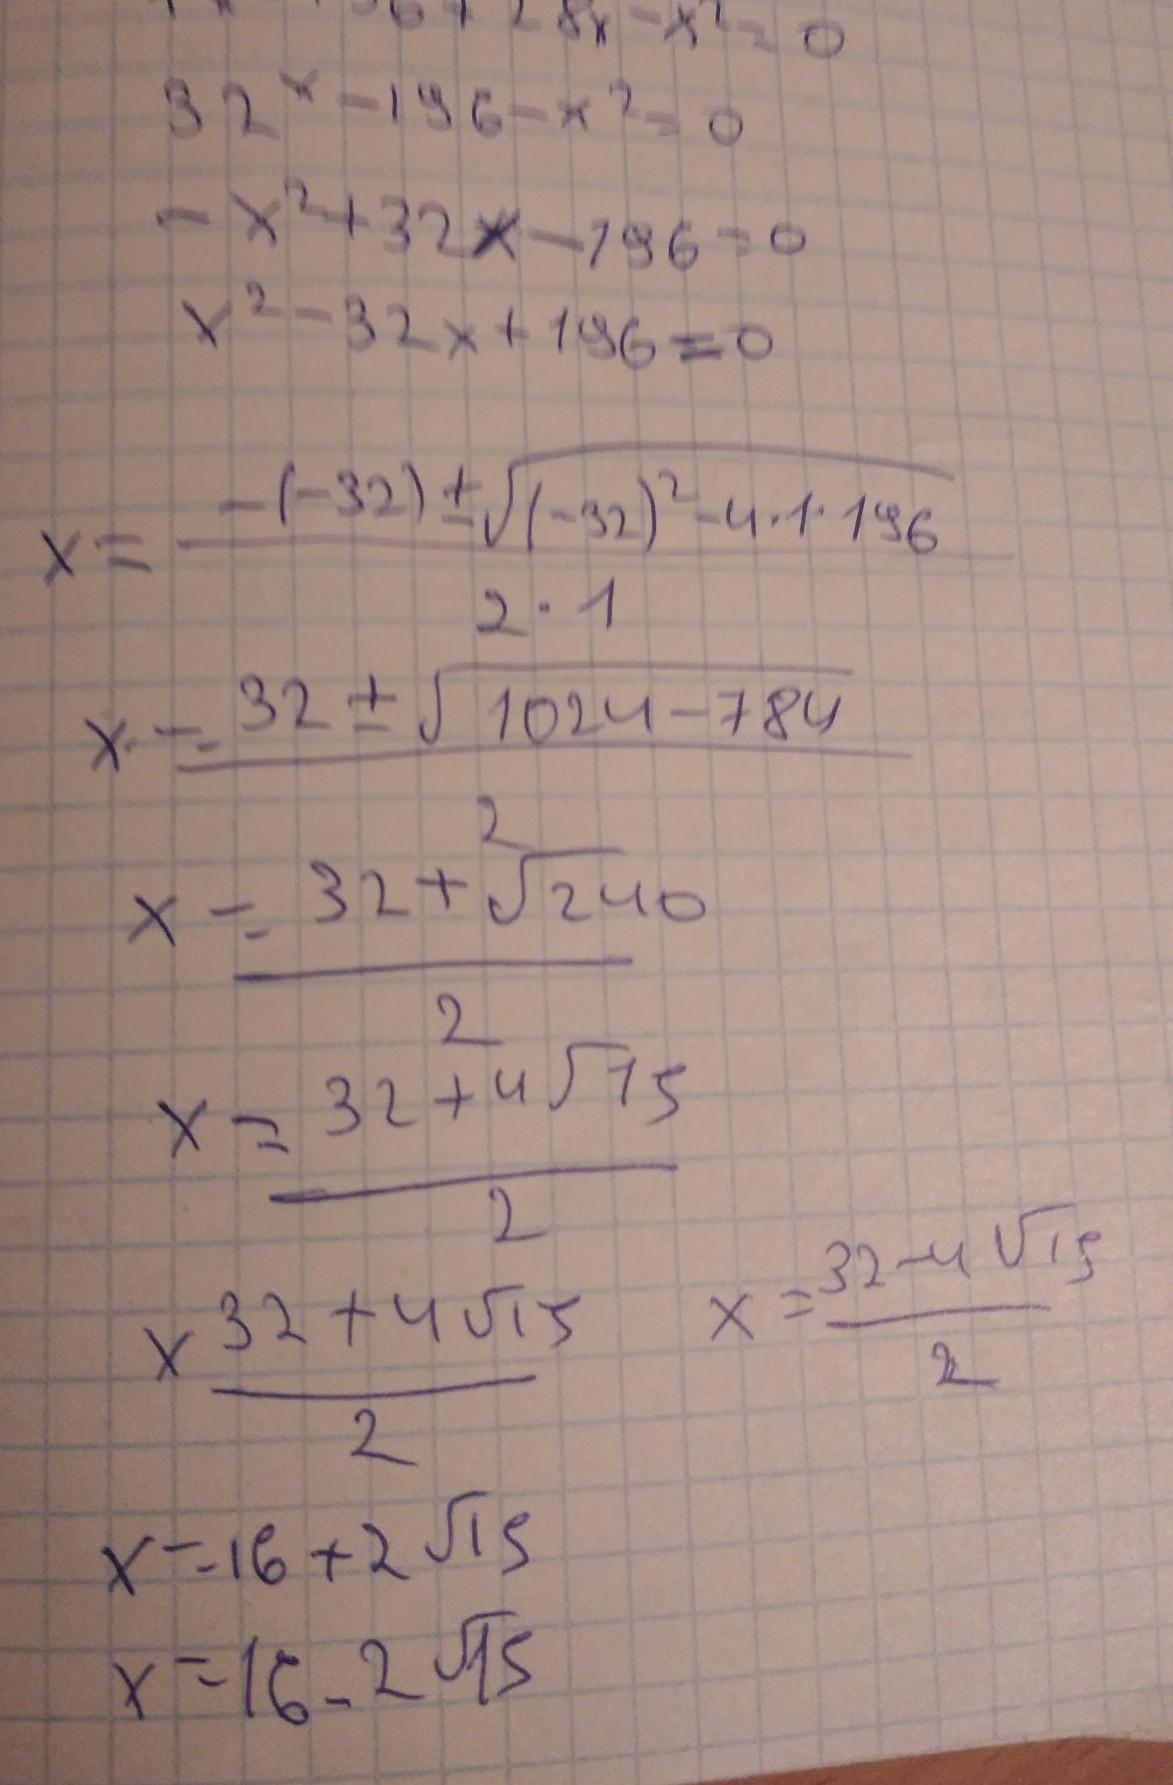 6 + 28x - x² = 0
32x - 196 - x² = 0
- x² + 32x - 196 = 0
x² - 32x + 196 = 0
x = (-(-32) ± √((-32)² - 4·1·196)) / (2·1)
x = (32 ± √(1024 - 784)) / 2
x = (32 + √240) / 2
x = (32 + 4√15) / 2
x (32 + 4√15) / 2    x = (32 - 4√15) / 2
x = 16 + 2√15
x = 16 - 2√15